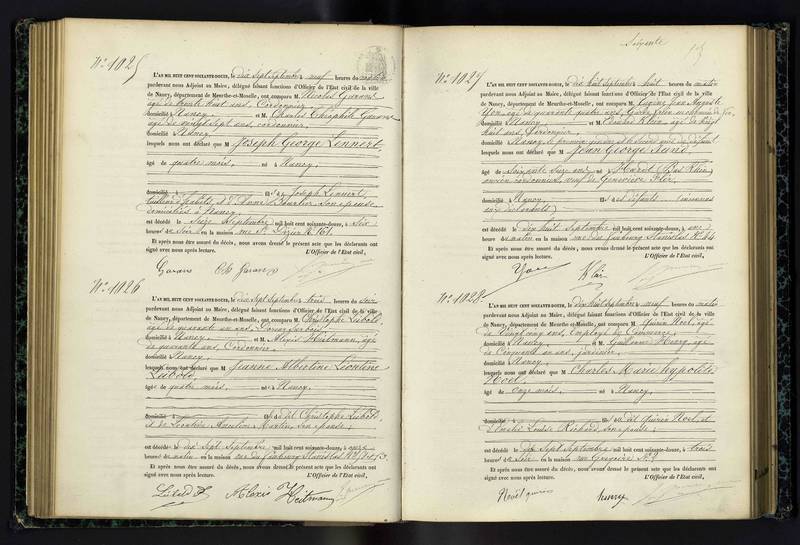 N° 1025
L'AN MIL HUIT CENT SOIXANTE-DOUZE, le dix Sept Septembre neuf heures du matin
pardevant nous Adjoint au Maire, délégué faisant fonctions d'Officier de l'Etat civil de la ville
de Nancy, département de Meurthe-et-Moselle, ont comparu M. Nicolas
âgé de trente huit ans, Cordonnier
domicilié à Nancy et M. Charles Théophile
âgé de vingt sept ans, cordonnier
domicilié à Nancy
lesquels nous ont déclaré que M Joseph George Lennert
âgé de quatre mois, né à Nancy,
domicilié à fils de Joseph Lennert,
et d' son épouse
domiciliés à Nancy
est décédé le Seize Septembre mil huit cent soixante-douze, à Six
heures du Soir en la maison rue St Dizier N° 161.
Et après nous être assuré du décès, nous avons dressé le présent acte que les déclarants ont
signé avec nous après lecture. L'Officier de l'Etat civil,
N° 1026
L'AN MIL HUIT CENT SOIXANTE-DOUZE, le dix Sept Septembre trois heures du soir
pardevant nous Adjoint au Maire, délégué faisant fonctions d'Officier de l'Etat civil de la ville
de Nancy, département de Meurthe-et-Moselle, ont comparu M. Christophe Lubold,
âgé de quarante un ans,
domicilié à Nancy et M. Alexis Heitmann, âgé
de quarante ans, Cordonnier,
domicilié à Nancy,
lesquels nous ont déclaré que M Jeanne Albertine Léontine
Lubold
âgé de quatre mois, né à Nancy,
domicilié à fille du dit Christophe Lubold,
et de Léontine Martin, son épouse,
est décédée le dix Sept Septembre mil huit cent soixante-douze, à onze
heures du matin en la maison rue du Faubourg Stanislas
Et après nous être assuré du décès, nous avons dressé le présent acte que les déclarants ont
signé avec nous après lecture. L'Officier de l'Etat civil,
Alexis Heitmann
Soixante
N° 1027
L'AN MIL HUIT CENT SOIXANTE-DOUZE, le dix huit Septembre huit heures du matin
pardevant nous Adjoint au Maire, délégué faisant fonctions d'Officier de l'Etat civil de la ville
de Nancy, département de Meurthe-et-Moselle, ont comparu M. Eugène Jean Auguste
Yon, âgé de quarante quatre ans,
domicilié à Nancy et M. âgé de
huit ans, Cordonnier,
domicilié à Nancy, le premier gendre et le second ami du défunt
lesquels nous ont déclaré que M Jean George Jund
âgé de soixante seize ans né à (Bas Rhin)
ancien cordonnier, veuf de Geneviève
domicilié à Nancy, fils de défunts (inconnus
aux déclarants)
est décédé le dix huit Septembre mil huit cent soixante-douze, à une
heure du matin en la maison rue du faubourg Stanislas N° 64
Et après nous être assuré du décès, nous avons dressé le présent acte que les déclarants ont
signé avec nous après lecture. L'Officier de l'Etat civil,
Yon
N° 1028
L'AN MIL HUIT CENT SOIXANTE-DOUZE, le dix huit Septembre neuf heures du matin
pardevant nous Adjoint au Maire, délégué faisant fonctions d'Officier de l'Etat civil de la ville
de Nancy, département de Meurthe-et-Moselle, ont comparu M. Quirin Noel, âgé
de vingt cinq ans, Employé de Commerce,
domicilié à Nancy, et M. Guillaume Henry, âgé
de Cinquante un ans, jardinier,
domicilié à Nancy,
lesquels nous ont déclaré que M Charles Marie hypolite
Noel
âgé de onze mois, né à Nancy,
domicilié à fils du dit Quirin Noel, et
Louise Richard, son épouse,
est décédé le dix Sept Septembre mil huit cent soixante-douze, à trois
heures du Soir en la maison rue Gengoult
Et après nous être assuré du décès, nous avons dressé le présent acte que les déclarants ont
signé avec nous après lecture. L'Officier de l'Etat civil,
Noël quirin henry